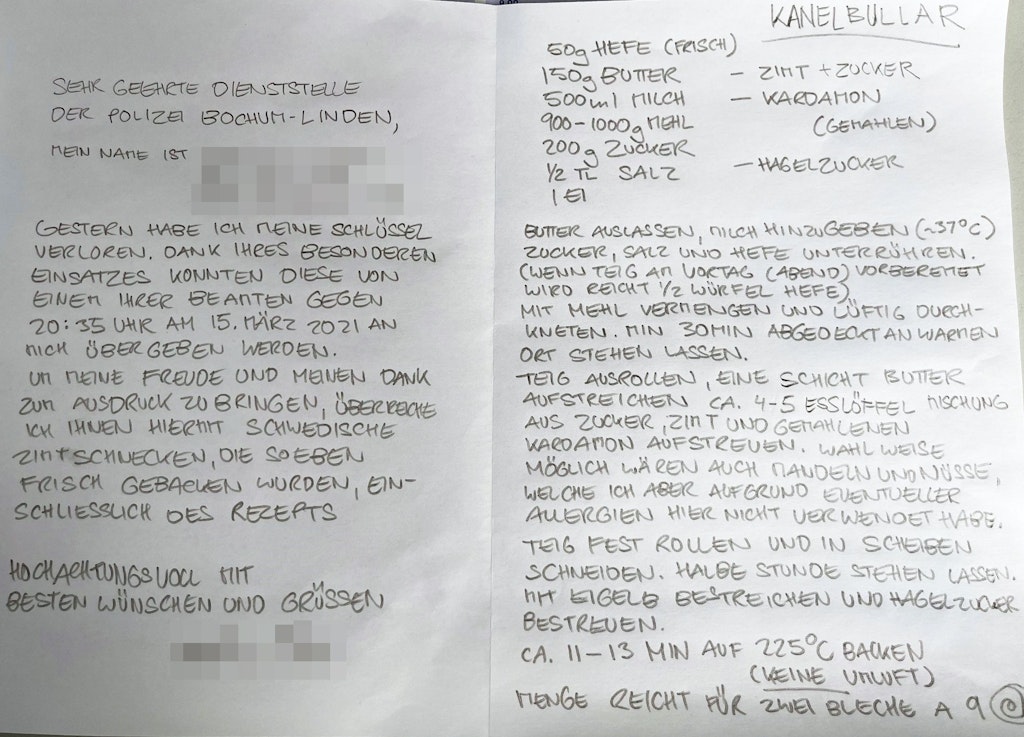 SEHR GEEHRTE DIENSTSTELLE
DER POLIZEI BOCHUM-LINDEN,
MEIN NAME IST
GESTERN HABE ICH MEINE SCHLÜSSEL
VERLOREN. DANK IHRES BESONDEREN
EINSATZES KONNTEN DIESE VON
EINEM IHRER BEAMTEN GEGEN
20:35 UHR AM 15. MÄRZ 2021 AN
MICH ÜBERGEBEN WERDEN.
UM MEINE FREUDE UND MEINEN DANK
ZUM AUSDRUCK ZU BRINGEN, ÜBERREICHE
ICH IHNEN HIERMIT SCHWEDISCHE
ZIMTSCHNECKEN, DIE SOEBEN
FRISCH GEBACKEN WURDEN, EIN-
SCHLIESSLICH DES REZEPTS
HOCHACHTUNGSVOLL MIT
BESTEN WÜNSCHEN UND GRÜSSEN
KANELBULLAR
50g HEFE (FRISCH)
150g BUTTER - ZIMT + ZUCKER
500ml MILCH - KARDAMON
900-1000g MEHL (GEMAHLEN)
200g ZUCKER
1/2 TL SALZ - HAGELZUCKER
1 EI
BUTTER AUSLASSEN, MILCH HINZUGEBEN (~37°C)
ZUCKER, SALZ UND HEFE UNTERRÜHREN.
(WENN TEIG AM VORTAG (ABEND) VORBEREITET
WIRD REICHT 1/2 WÜRFEL HEFE)
MIT MEHL VERMENGEN UND LÜFTIG DURCH-
KNETEN. MIN 30MIN ABGEDECKT AN WARMEN
ORT STEHEN LASSEN.
TEIG AUSROLLEN, EINE SCHICHT BUTTER
AUFSTREICHEN CA. 4-5 ESSLÖFFEL MISCHUNG
AUS ZUCKER, ZIMT UND GEMAHLENEN
KARDAMON AUFSTREUEN. WAHLWEISE
MÖGLICH WÄREN AUCH MANDELN UND NÜSSE,
WELCHE ICH ABER AUFGRUND EVENTUELLER
ALLERGIEN HIER NICHT VERWENDET HABE.
TEIG FEST ROLLEN UND IN SCHEIBEN
SCHNEIDEN. HALBE STUNDE STEHEN LASSEN.
MIT EIGELB BESTREICHEN UND HAGELZUCKER
BESTREUEN.
CA. 11-13 MIN AUF 225°C BACKEN
(KEINE UMLUFT)
MENGE REICHT FÜR ZWEI BLECHE A 9